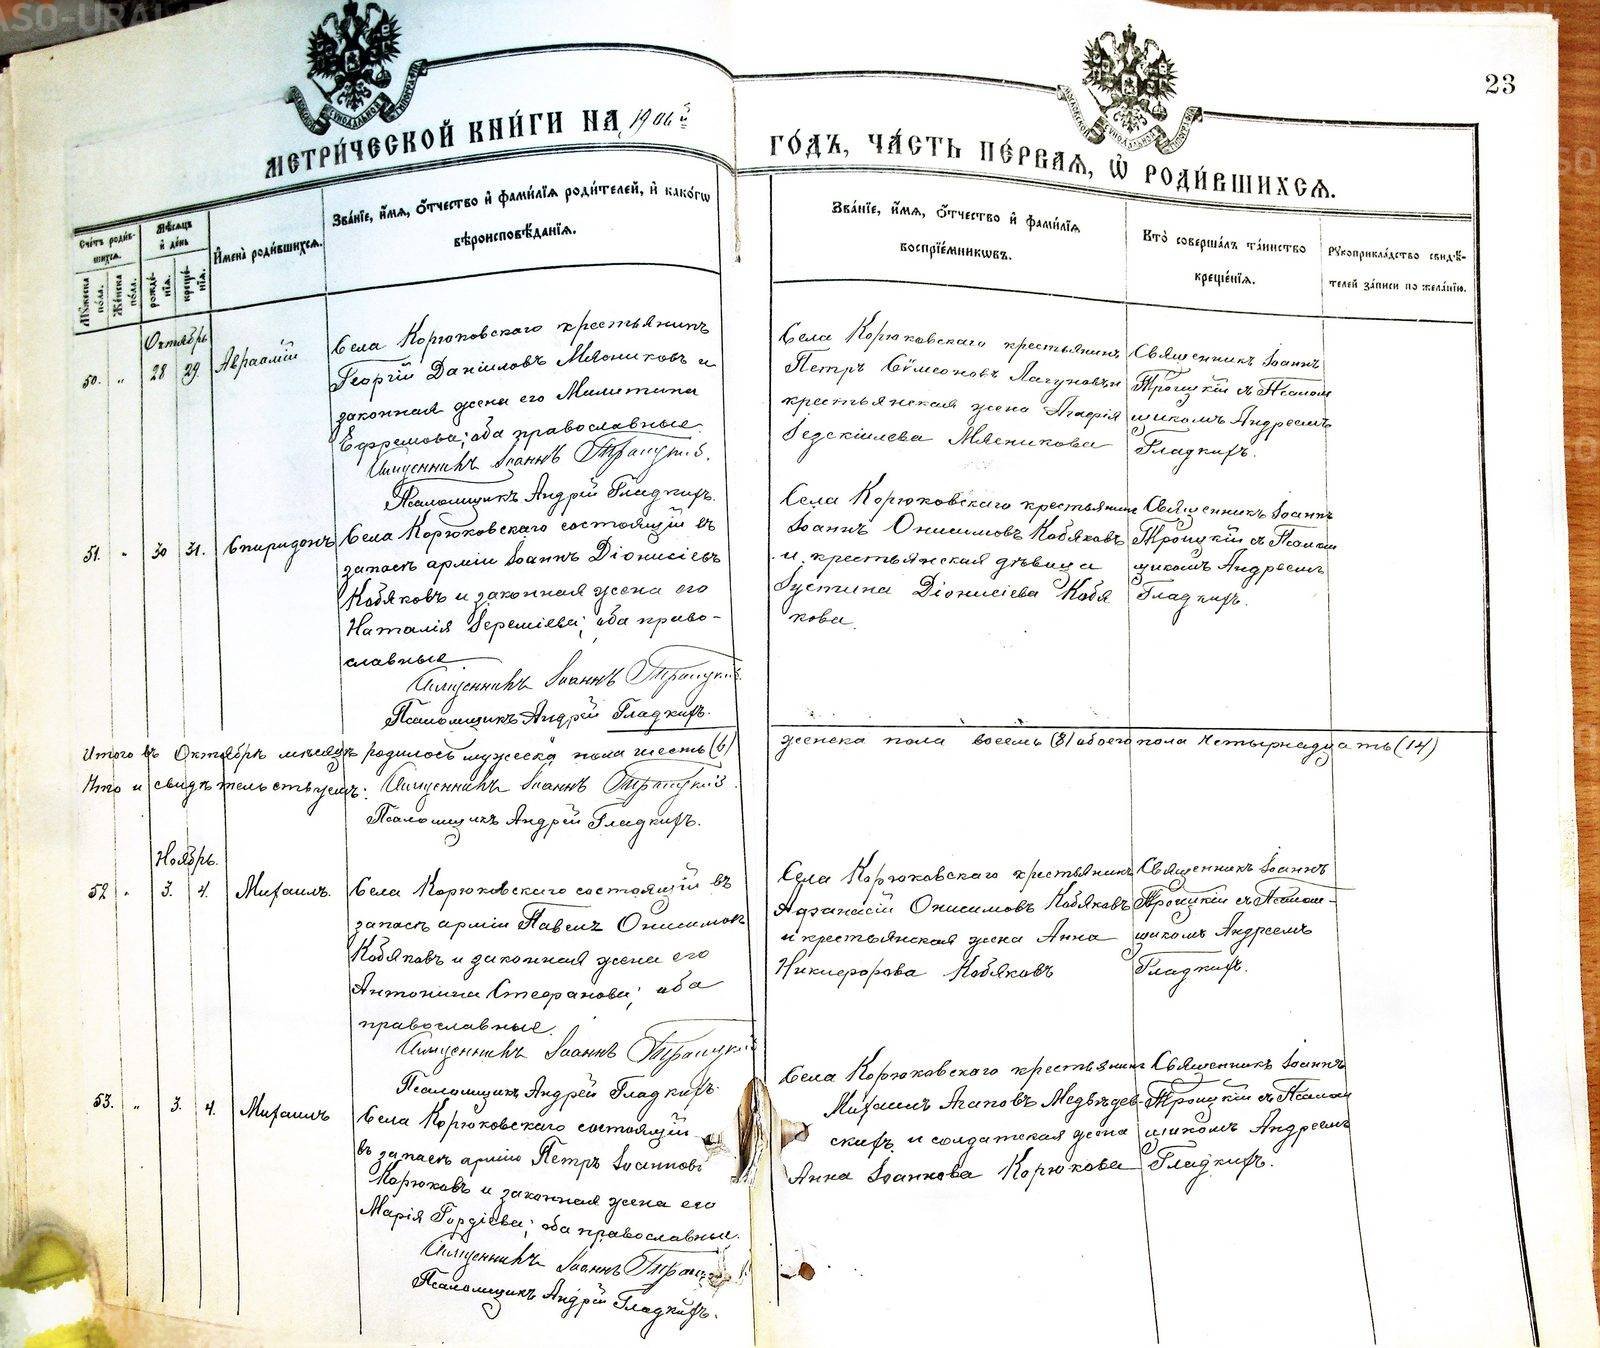 23
МЕТРИ́ЧЕСКОЙ КНИ́ГИ НА 1906й
ГО́ДЪ, ЧА́СТЬ ПЕ́РВАѦ, Ѡ҆ РОДИ́ВШИХСѦ.
Сче́тъ роди́вшихсѧ.
Мꙋ́жеска по́ла.
Же́нска по́ла.
Мѣ́сѧцъ и҆ де́нь
рожде́нїѧ.
креще́нїѧ.
И҆мена̀ роди́вшихсѧ.
Зва́нїе, и҆́мѧ, ѻ҆́тчество и҆ фами́лїѧ роди́телей, и҆ како́гѡ
вѣроисповѣ́данїѧ.
Зва́нїе, и҆́мѧ, ѻ҆́тчество и҆ фами́лїѧ
воспрїе́мникѡвъ.
Кто̀ соверша́лъ та́инство
креще́нїѧ.
Рꙋкоприкла́дство свидѣ́-
телей за́писи по жела́нїю.
Октябрь
50. „ 28 29. Авраамій
Села Корюковскаго крестьянинъ
Георгій Даніиловъ Мясниковъ и
законная жена его Милитина
Ефремова; оба православные.
Священникъ Іоаннъ Троицкій.
Псаломщикъ Андрей Гладкихъ.
Села Корюковскаго крестьянинъ
Петръ Сѵмеоновъ Лагуновъ и
крестьянская жена Агафія
Іезекіилева Мясникова
Священникъ Іоаннъ
Троицкій съ Псалом
щикомъ Андреемъ
Гладкихъ.
51. „ 30 31. Спиридонъ
Села Корюковскаго состоящій въ
запасѣ арміи Іоаннъ Діонисіевъ
Кобяковъ и законная жена его
Наталія Іереміева; оба право-
славные
Священникъ Іоаннъ Троицкій
Псаломщикъ Андрей Гладкихъ.
Села Корюковскаго крестьянинъ
Іоаннъ Онисимовъ Кобяковъ
и крестьянская дѣвица
Іустина Діонисіева Кобя
кова.
Священникъ Іоаннъ
Троицкій съ Псалом
щикомъ Андреемъ
Гладкихъ.
Итого въ Октябрѣ мѣсяцѣ родилось мужеска пола шесть (6) женска пола восемь (8) обоего пола четырнадцать (14)
Что и свидѣтельствуемъ: Священникъ Іоаннъ Троицкій
Псаломщикъ Андрей Гладкихъ.
Ноябрь.
52 „ 3. 4. Михаилъ.
Села Корюковскаго состоящій въ
запасѣ арміи Павелъ Онисимовъ
Кобяковъ и законная жена его
Антонина Стефанова; оба
православные.
Священникъ Іоаннъ Троицкій
Псаломщикъ Андрей Гладкихъ.
Села Корюковскаго крестьянинъ
Афанасій Онисимовъ Кобяковъ
и крестьянская жена Анна
Никифорова Кобяковъ
Священникъ Іоаннъ
Троицкій съ Псалом-
щикомъ Андреемъ
Гладкихъ.
53. „ 3. 4. Михаилъ
Села Корюковскаго состоящій
въ запасѣ арміи Петръ Іоанновъ
Корюковъ и законная жена его
Марія Гордіева; оба православные.
Священникъ Іоаннъ Троицкій
Псаломщикъ Андрей Гладкихъ.
Села Корюковскаго крестьянинъ
Михаилъ Агаповъ Медвѣдев-
скихъ и солдатская жена
Анна Іоаннова Корюкова
Священникъ Іоаннъ
Троицкій съ Псалом
щикомъ Андреемъ
Гладкихъ.